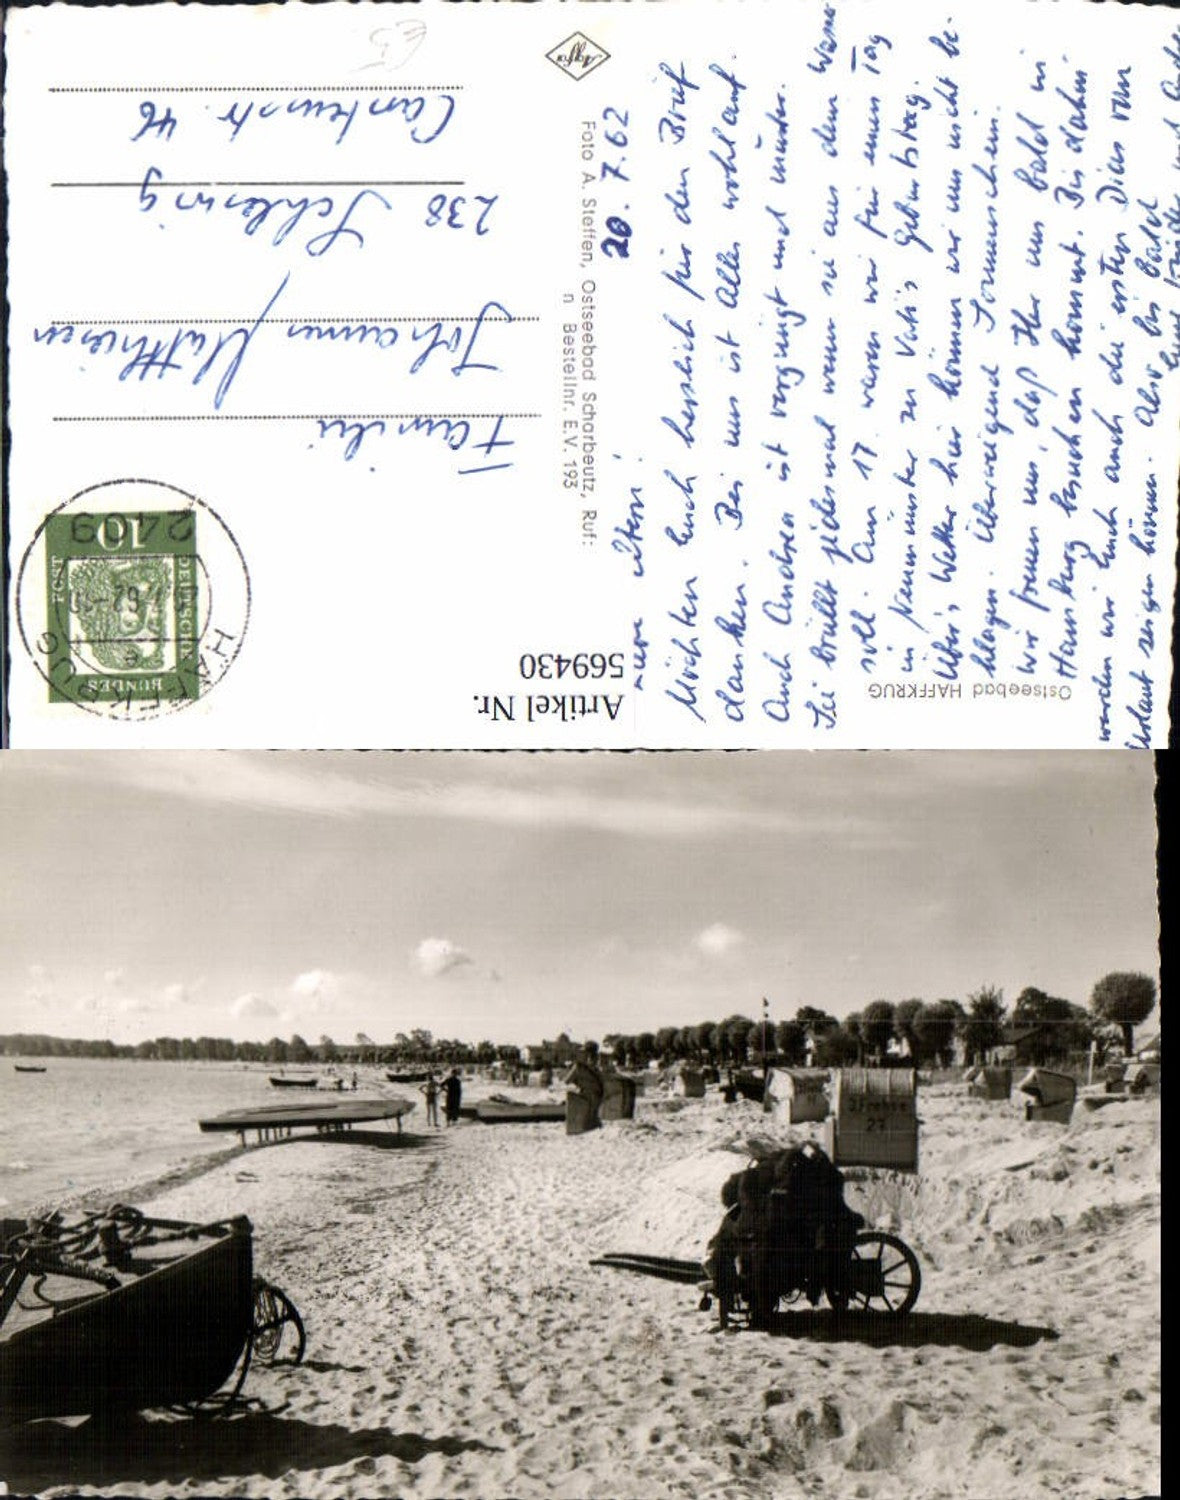 20.7.62
Möchten Euch herzlich für den Brief
danken. Bei uns ist Alles wohlauf.
Auch Andrea ist vergnügt und munter.
Sie brüllt jedesmal wenn sie aus dem Wasser
soll. Am 17. waren wir für einen Tag
in Neumünster zu Vati's Geburtstag.
Über's Wetter hier können wir uns nicht be-
klagen. Überwiegend Sonnenschein.
Wir freuen uns, daß Ihr uns bald in
Hamburg besuchen kommt. Bis dahin
werden wir Euch auch die ersten Dias vom
Urlaub zeigen können. Also bis bald
Ostseebad HAFFKRUG
Foto A. Steffen, Ostseebad Scharbeutz, Ruf:
n Bestellnr. E.V. 193
Agfa
DEUTSCHE
BUNDES
POST
10
2409
HAFFKRUG
e
Familie
Johannes Matthiesen
238 Schleswig
46
Artikel Nr.
569430
27